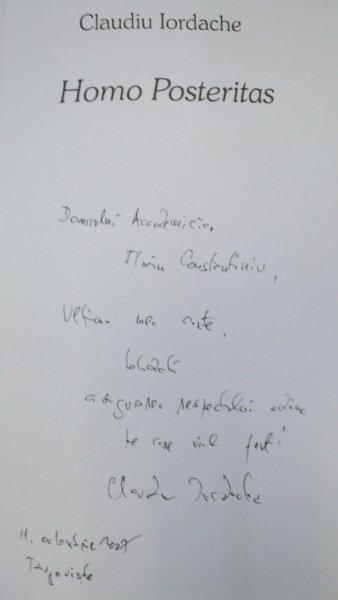 Claudiu Iordache
Homo Posteritas
Domnului Academician
Florin Constantiniu,
Ultima mea carte,
asigurarea respectului
pe care vi-l port!
Claudiu Iordache
11. octombrie 2007
Târgoviște